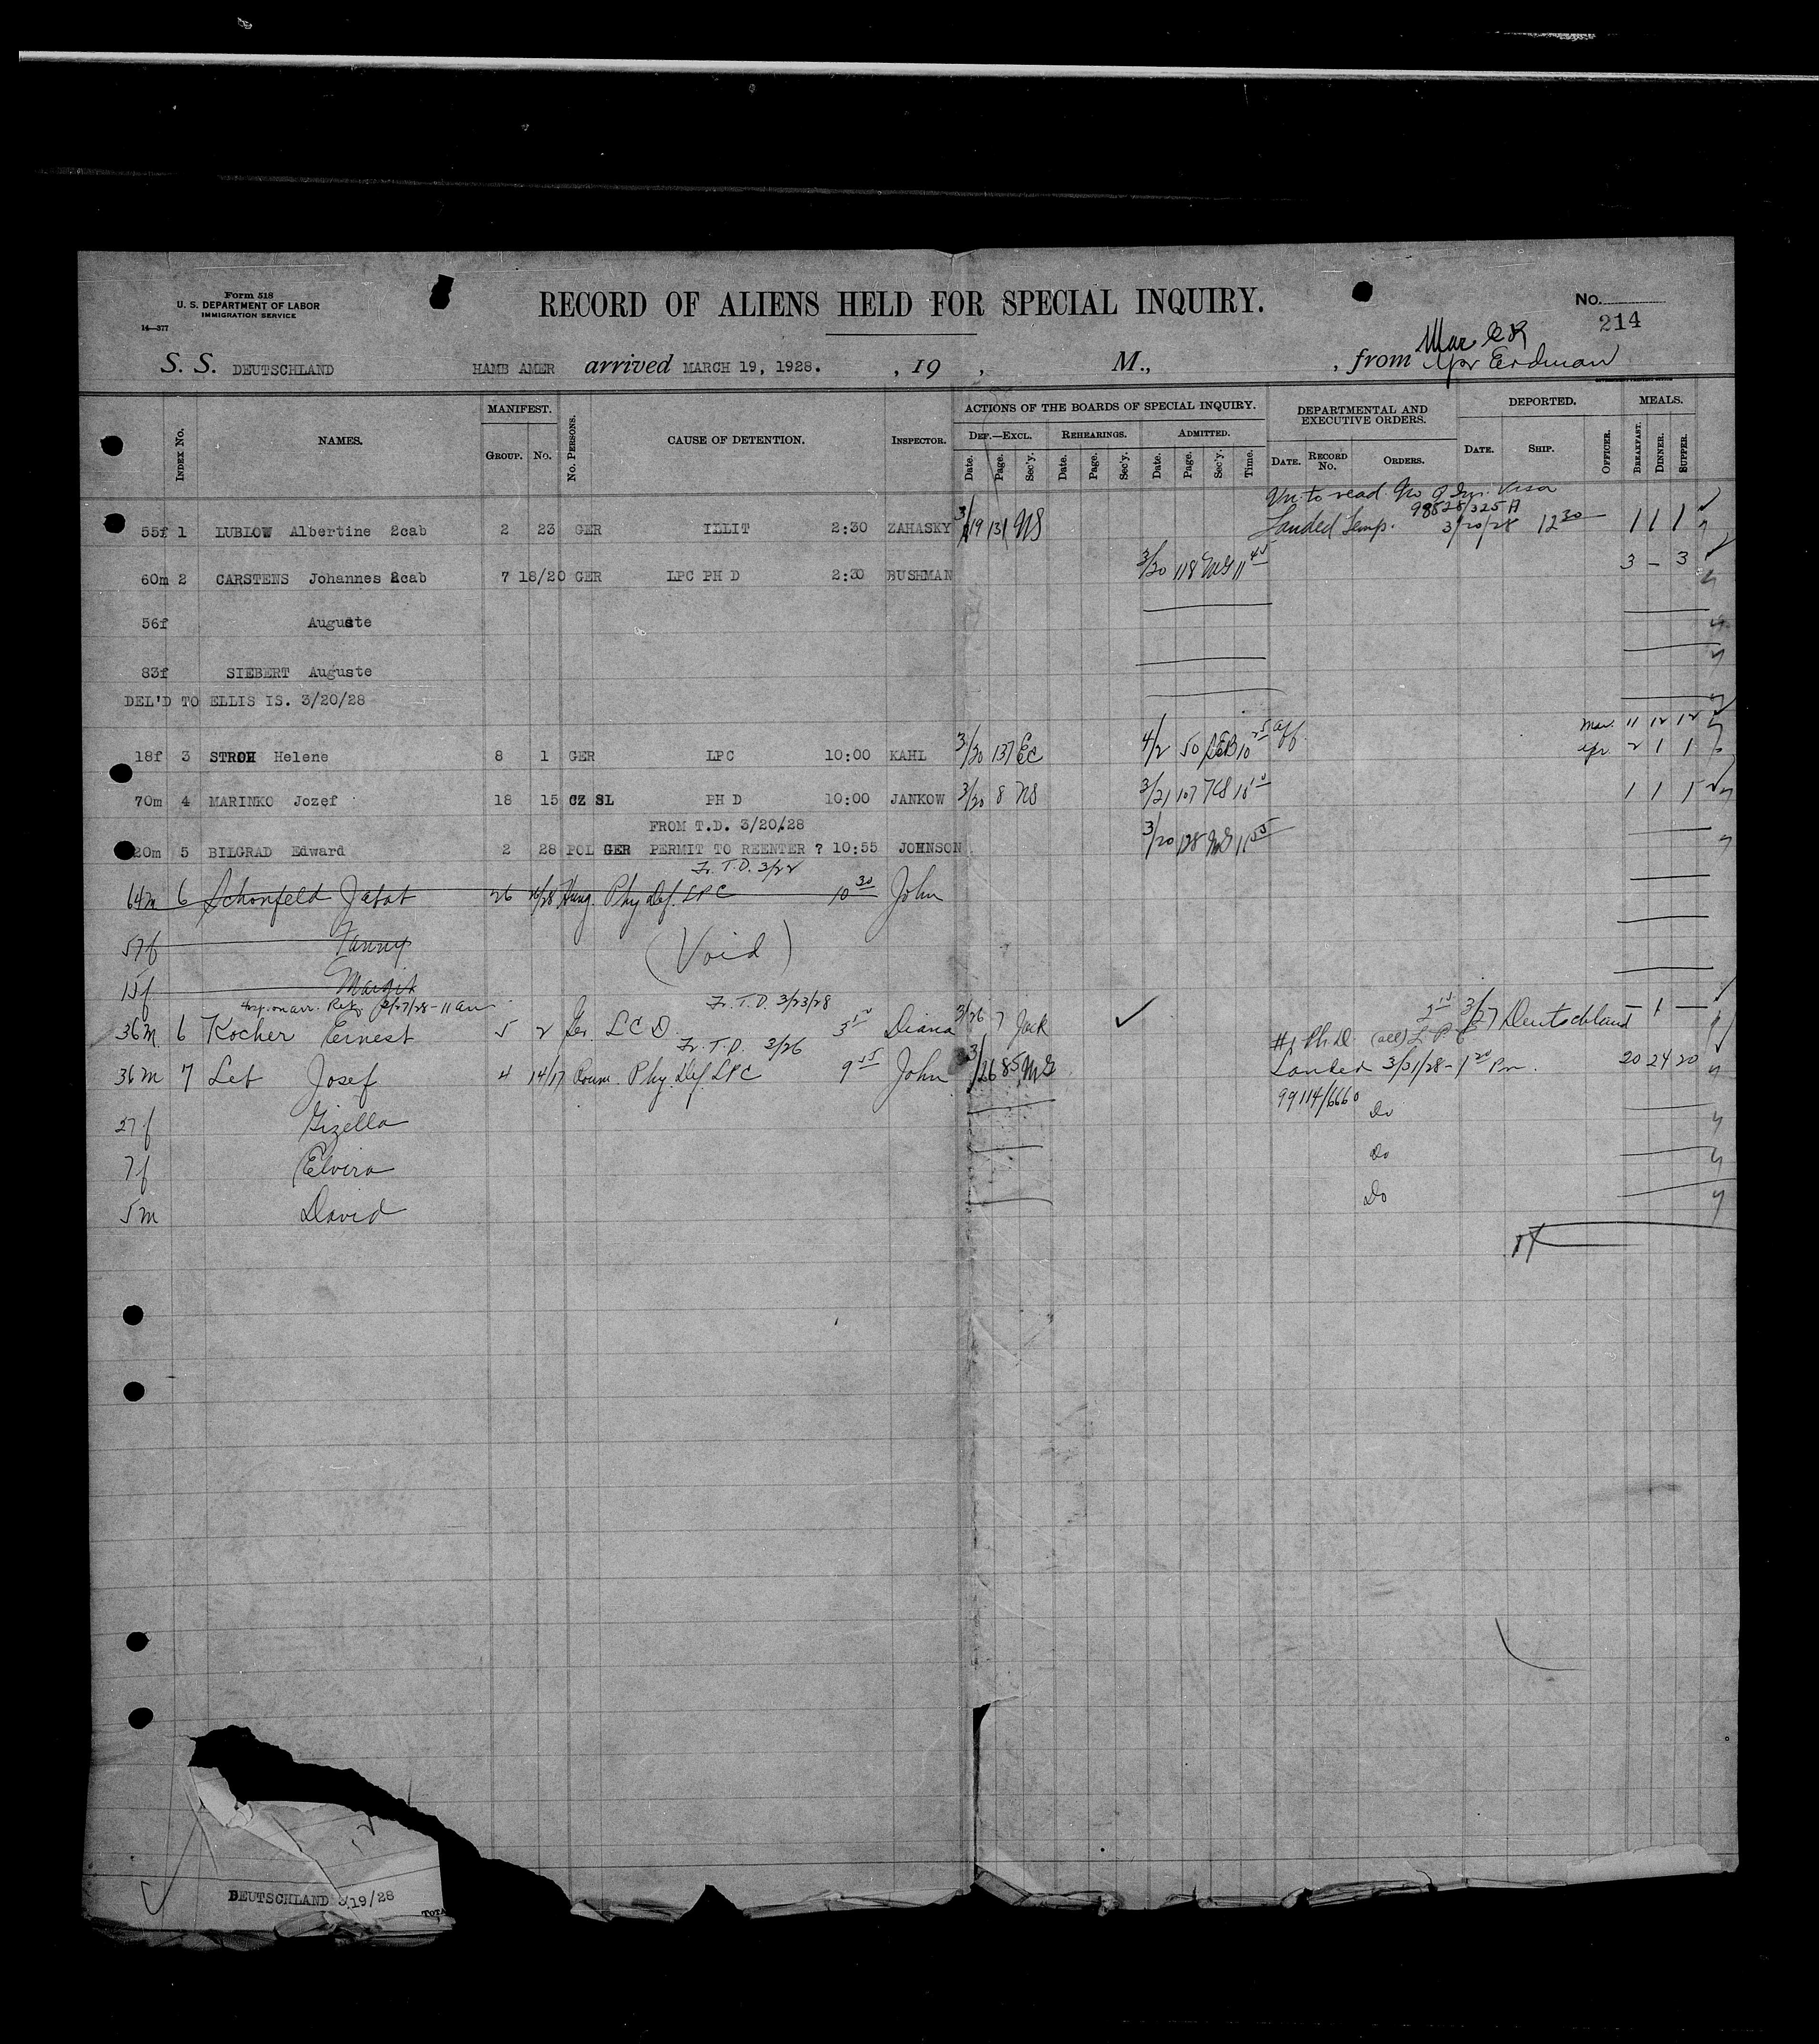 Form 518
U. S. DEPARTMENT OF LABOR
IMMIGRATION SERVICE
14—377
RECORD OF ALIENS HELD FOR SPECIAL INQUIRY.
No.
214
Mar
S. S. DEUTSCHLAND HAMB AMER arrived MARCH 19, 1928. , 19 , M., , from Apr Erdman
INDEX No. NAMES. MANIFEST. GROUP. No. No. PERSONS. CAUSE OF DETENTION. INSPECTOR. ACTIONS OF THE BOARDS OF SPECIAL INQUIRY. DEF.—EXCL. REHEARINGS. ADMITTED. DEPARTMENTAL AND EXECUTIVE ORDERS. DEPORTED. MEALS.
Date. Page. Sec'y. Date. Page. Sec'y. Date. Page. Sec'y. Time. DATE. RECORD No. ORDERS. DATE. SHIP. OFFICER. BREAKFAST. DINNER. SUPPER.
to read No Visa
98525/325 A
55f 1 LUBLOW Albertine 2cab 2 23 GER ILLIT 2:30 ZAHASKY 3/19 131 NS Landed Temp. 3/20/28 12 30 1 1 1
60m 2 CARSTENS Johannes 2cab 7 18/20 GER LPC PH D 2:30 BUSHMAN 3/20 118 11 45 3 — 3
56f Auguste
83f SIEBERT Auguste
DEL'D TO ELLIS IS. 3/20/28
Mar. 11 12 12
18f 3 STROH Helene 8 1 GER LPC 10:00 KAHL 3/20 137 EC 4/2 50 10 25 aff. apr. 2 1 1
70m 4 MARINKO Jozef 18 15 CZ SL PH D 10:00 JANKOW 3/20 8 NS 3/21 107 1 1 1
FROM T.D. 3/20/28
20m 5 BILGRAD Edward 2 28 POL GER PERMIT TO REENTER ? 10:55 JOHNSON 3/20 128 11 55
Fr. T.D. 3/22
64m 6 Schonfeld 26 26/28 Hung. Phy Def. LPC 10 30 John
57f Fanny (Void)
15f Margit
Hosp. on arr. 3/27/28 - 11 am Fr. T.D. 3/23/28
36m 6 Kocher Ernest 5 2 Ger. L C D 3 Diana 3/26 7 Jack 3/27 Deutschland — 1 —
Fr. T.D. 3/26 #1 Ph. D. (all) L P C
36m 7 Leb Josef 4 14/17 Roum Phy. Def LPC 9 15 John 3/26 85 MG Landed 3/31/28 - 1 20 Pm. 20 24 20
99114/6660
27f Gizella Do
7f Elvira Do
5m David Do
DEUTSCHLAND 3/19/28
TOTA